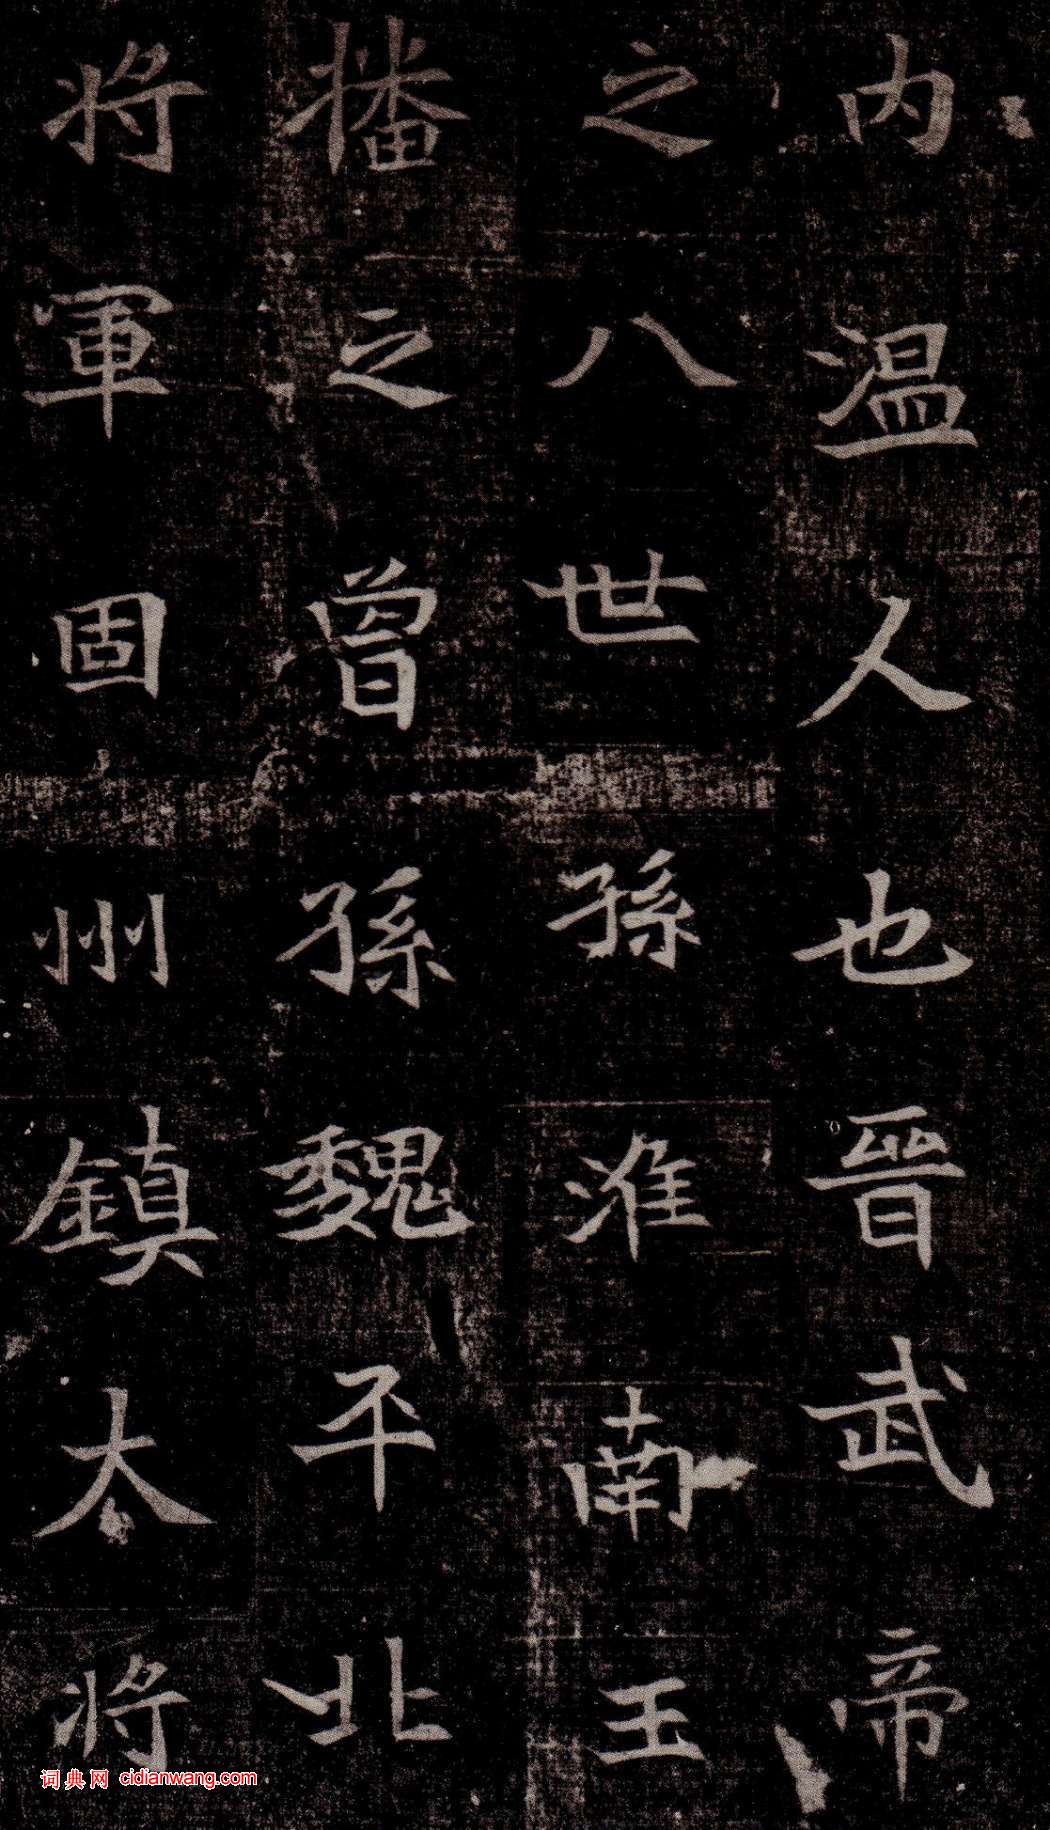 内温人也晉武帝
之八世孫淮南王
播之曾孫魏平北
將軍固州鎮大將
词典网 cidianwang.com